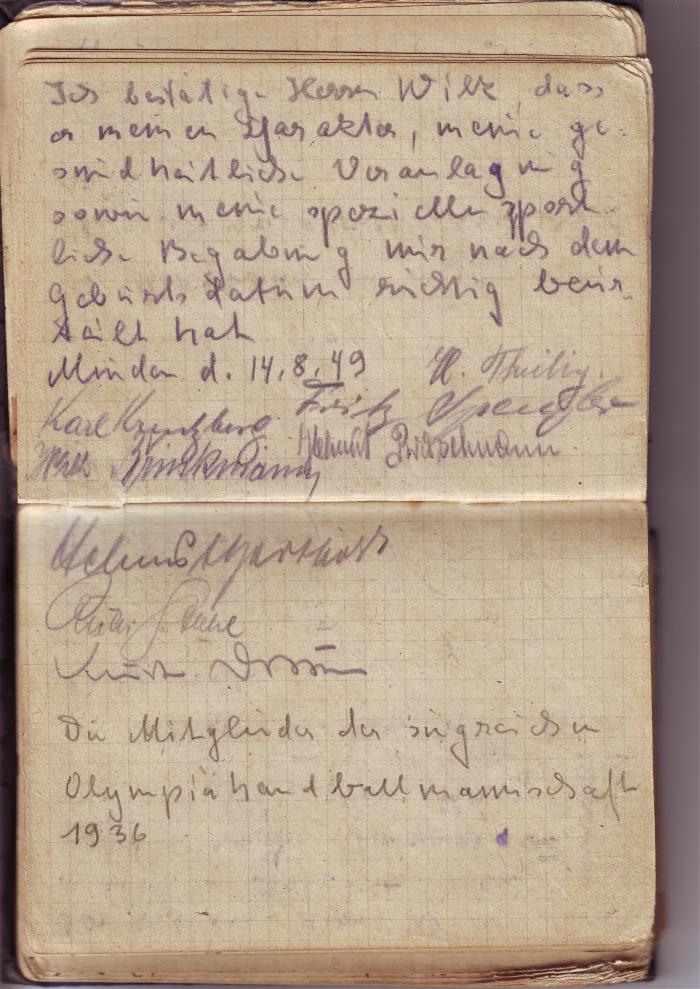 Ich bestätige Herrn Wilk, dass
er meinen Charakter, meine ge-
sundheitliche Veranlagung
sowie meine spezielle sport-
liche Begabung nur nach dem
Geburtsdatum richtig beur-
teilt hat
Minden d. 14.8.49 H. Theilig.
Karl Kreutzberg Fritz Spengler
Willi Brinkmann Helmut
Helmut Berthold
Kurt Dossin
Die Mitglieder der siegreichen
Olympiahandballmannschaft
1936